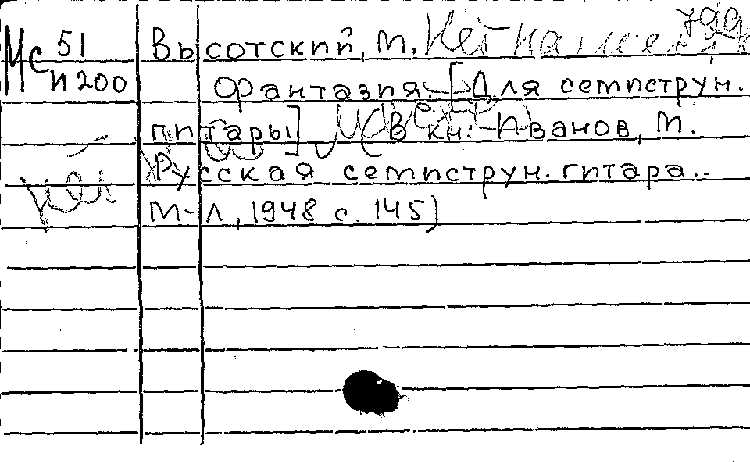 799
Мс 51 Высотский, М. Нет на
И 200 Фантазия [Для семиструн.
гитары] (В кн: Иванов, М.
нет Русская семиструн. гитара.-
М-Л, 1948 с. 145)